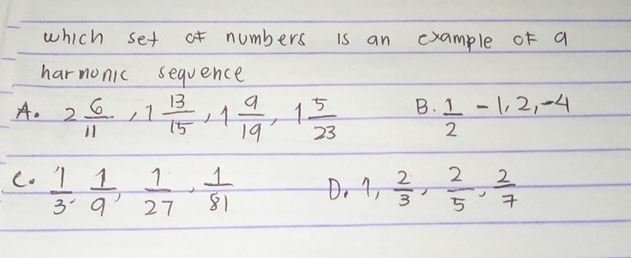 which set of numbers is an example of a
harmonic sequence
A. 2 6/11, 1 13/15, 1 9/19, 1 5/23 B. 1/2 -1, 2, -4
C. 1/3, 1/9, 1/27, 1/81 D. 1, 2/3, 2/5, 2/7